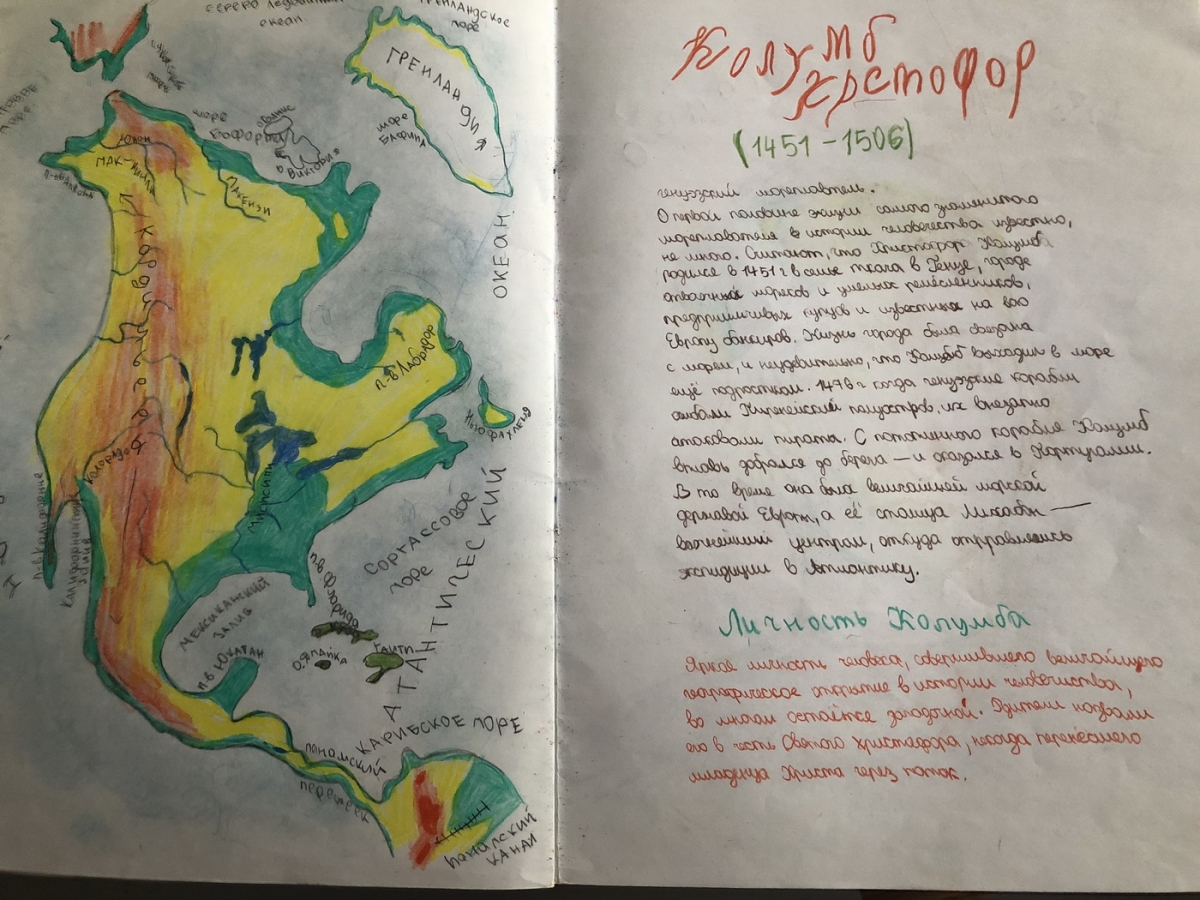 океан
море
Юкон
МАК-КИНЛИ
море
Бофорта
о. Виктория
море
Бафина
ГРЕНЛАНДИЯ
ОКЕАН
Кордильеры
п-в Лабрадор
Колорадо
п-в Калифорния
Миссисипи
САРГАССОВОЕ
море
АТАНТИЧЕСКИЙ
п-в Флорида
МЕКСИКАНСКИЙ
ЗАЛИВ
п-в ЮКАТАН
ГАИТИ
КАРИБСКОЕ МОРЕ
панамский
перешеек
панамский
КАНАЛ
Колумб
Хрстофор
(1451-1506)
генуэзский мореплаватель.
О первой половине жизни самого знаменитого
мореплавателя в истории человечества известно,
не много. Считают, что Христофор Колумб
родился в 1451 г в семье ткача в Генуе, городе
отважных моряков и умелых ремесленников,
предприимчивых купцов и известных на всю
Европу банкиров. Жизнь города была связана
с морем, и неудивительно, что Колумб выходил в море
ещё подростком. 1476 г когда генуэзские корабли
огибали Пиренейский полуостров, их внезапно
атаковали пираты. С потопленного корабля Колумб
вплавь добрался до берега — и оказался в Португалии.
В то время она была величайшей морской
державой Европы, а её столица Лиссабон —
важнейшим центром, откуда отправлялись
экспедиции в Атлантику.
Личность Колумба
Яркая личность человека, совершившего величайшего
географическое открытие в истории человечиства,
во многом остаётся загадочной. Родители назвали
его в честь Святого Христофора, некогда перенёсшего
младенца Христа через поток.